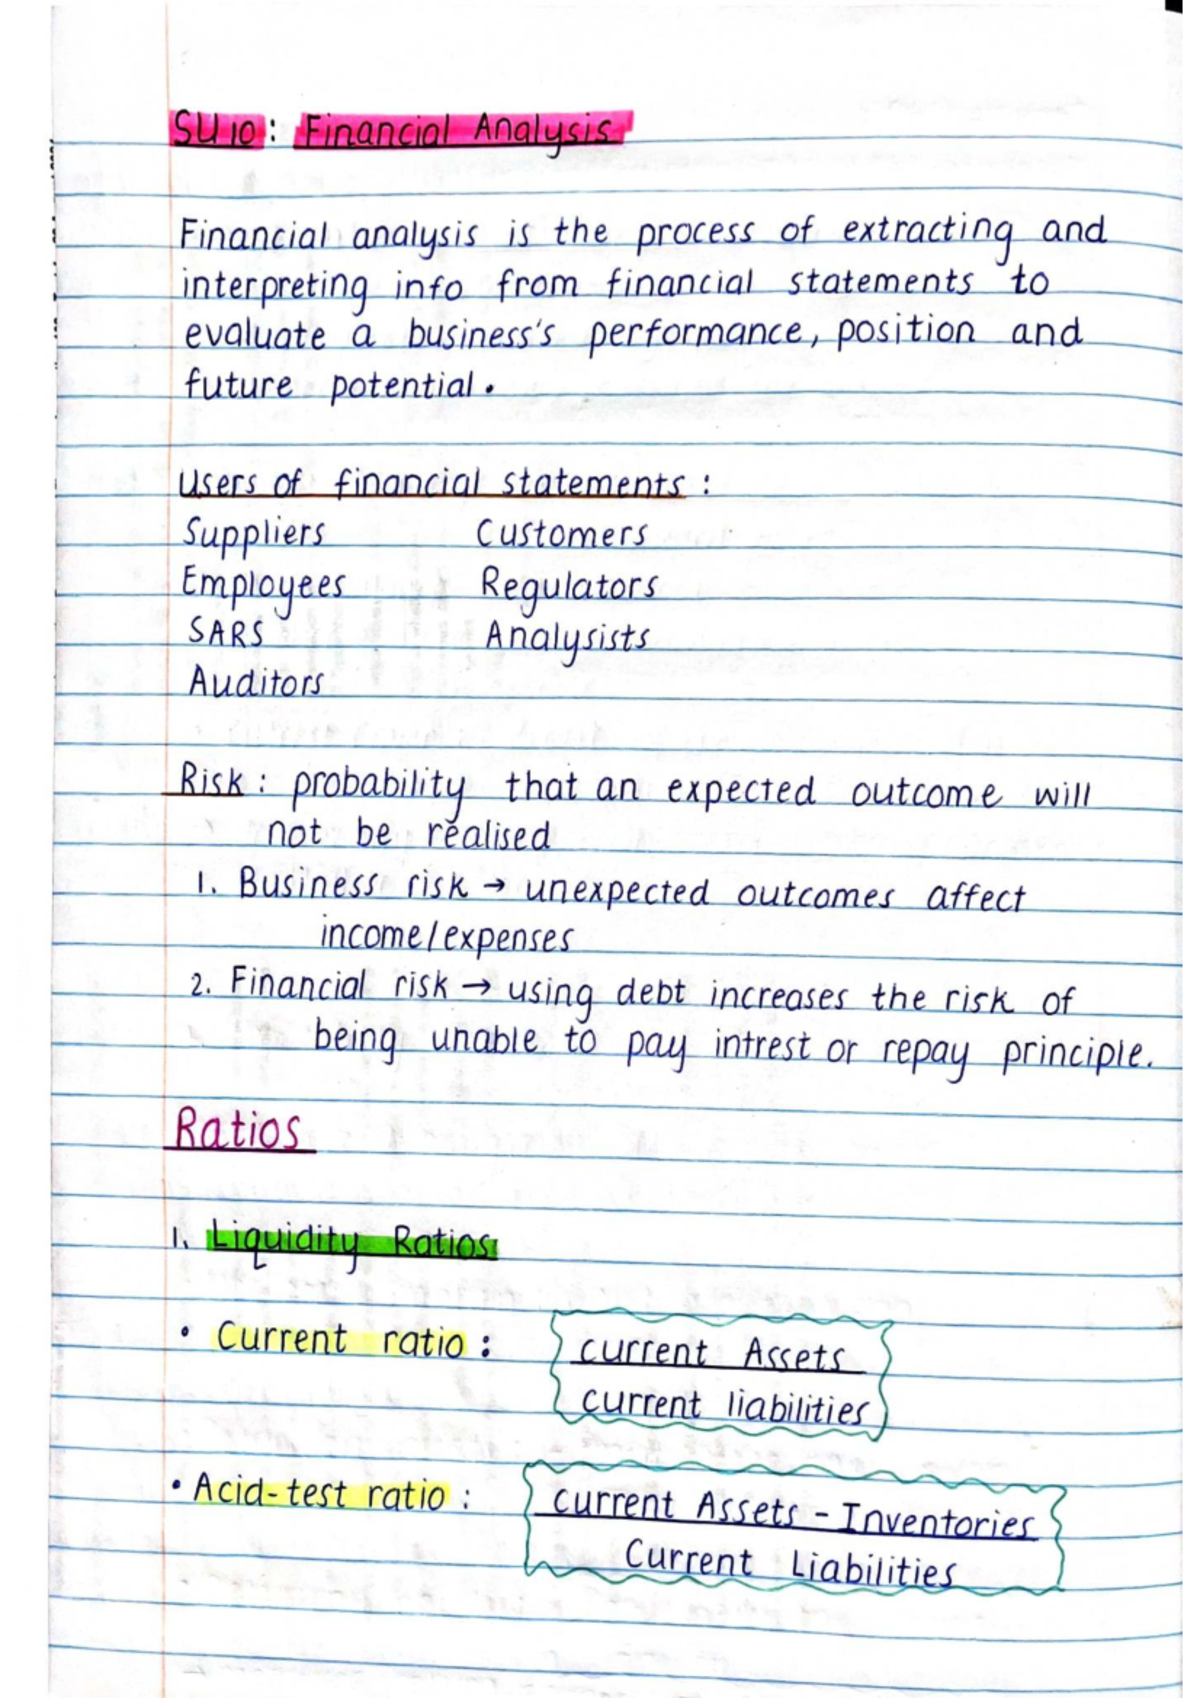 SU 10: Financial Analysis
Financial analysis is the process of extracting and
interpreting info from financial statements to
evaluate a business's performance, position and
future potential.
Users of financial statements:
Suppliers Customers
Employees Regulators
SARS Analysists
Auditors
Risk: probability that an expected outcome will
not be realised
1. Business risk → unexpected outcomes affect
income/expenses
2. Financial risk → using debt increases the risk of
being unable to pay intrest or repay principle.
Ratios
1. Liquidity Ratios
• Current ratio: current Assets
current liabilities
• Acid-test ratio: current Assets - Inventories
Current Liabilities